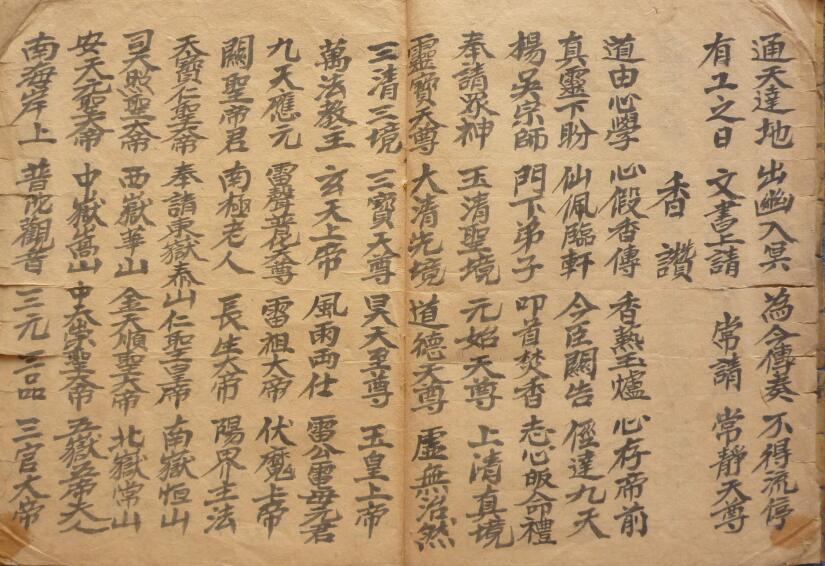 通天達地 出幽入冥 為今傳奏 不得流停
有工之日 文書上請 常請 常靜天尊
香讚
道由心學 心假香傳 香熱玉爐 心存帝前
真靈下盼 仙佩臨軒 今臣關告 徑達九天
楊吳宗師 門下弟子 叩首焚香 志心皈命禮
奉請眾神 玉清聖境 元始天尊 上清真境
靈寶天尊 大清先境 道德天尊 虛無浩然
三清三境 三寶天尊 昊天至尊 玉皇上帝
萬法教主 玄天上帝 風雨兩仕 雷公電母元君
九天應元 雷聲普化天尊 雷祖大帝 伏魔上帝
關聖帝君 南極老人 長生大帝 陽界主法
天寶仁聖大帝 奉請東嶽泰山 仁聖皇帝 南嶽恒山
司天照聖大帝 西嶽華山 金天順聖大帝 北嶽常山
安天元聖大帝 中嶽嵩山 中天崇聖大帝 五嶽五帝夫人
南海岸上 普陀觀音 三元三品 三官大帝